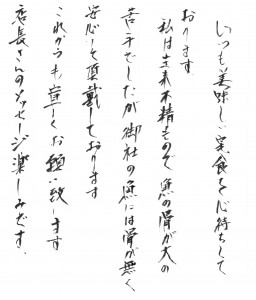 いつも美味しい宅食を心待ちして
おります
私は生来不精もので 魚の骨が大の
苦手でしたが 御社の魚には骨が無く
安心して頂戴しております
これからも宜しくお願い致します
店長さんのメッセージ楽しみです、